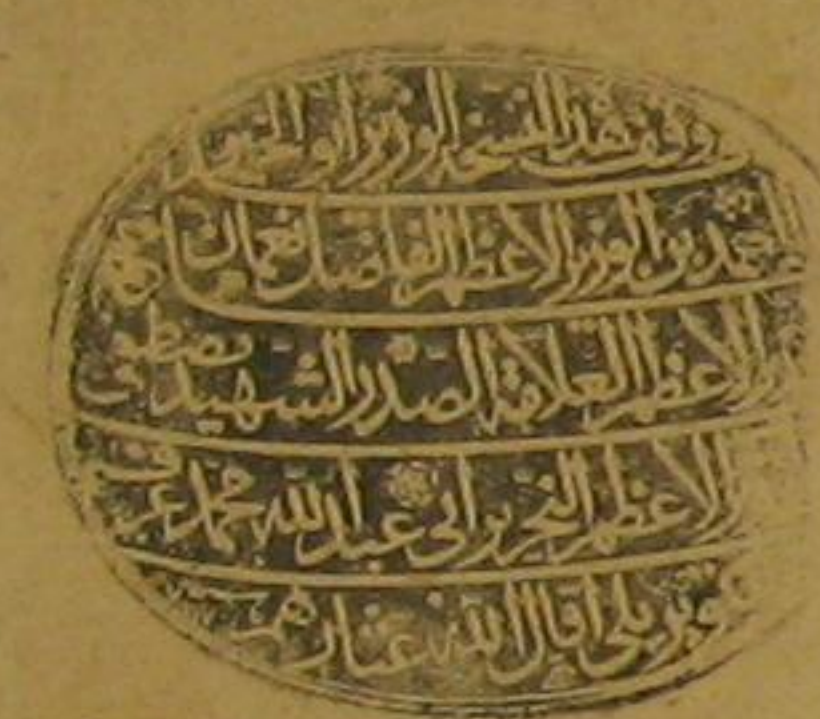 وقف هذا النسخة الوزير ابو الخير
احمد بن الوزير الاعظم الفاضل نعمان
الاعظم العلامة الصدر الشهيد مصطفى
الاعظم النحرير ابي عبد الله محمد عرف
كوبريلي اقال الله عثارهم